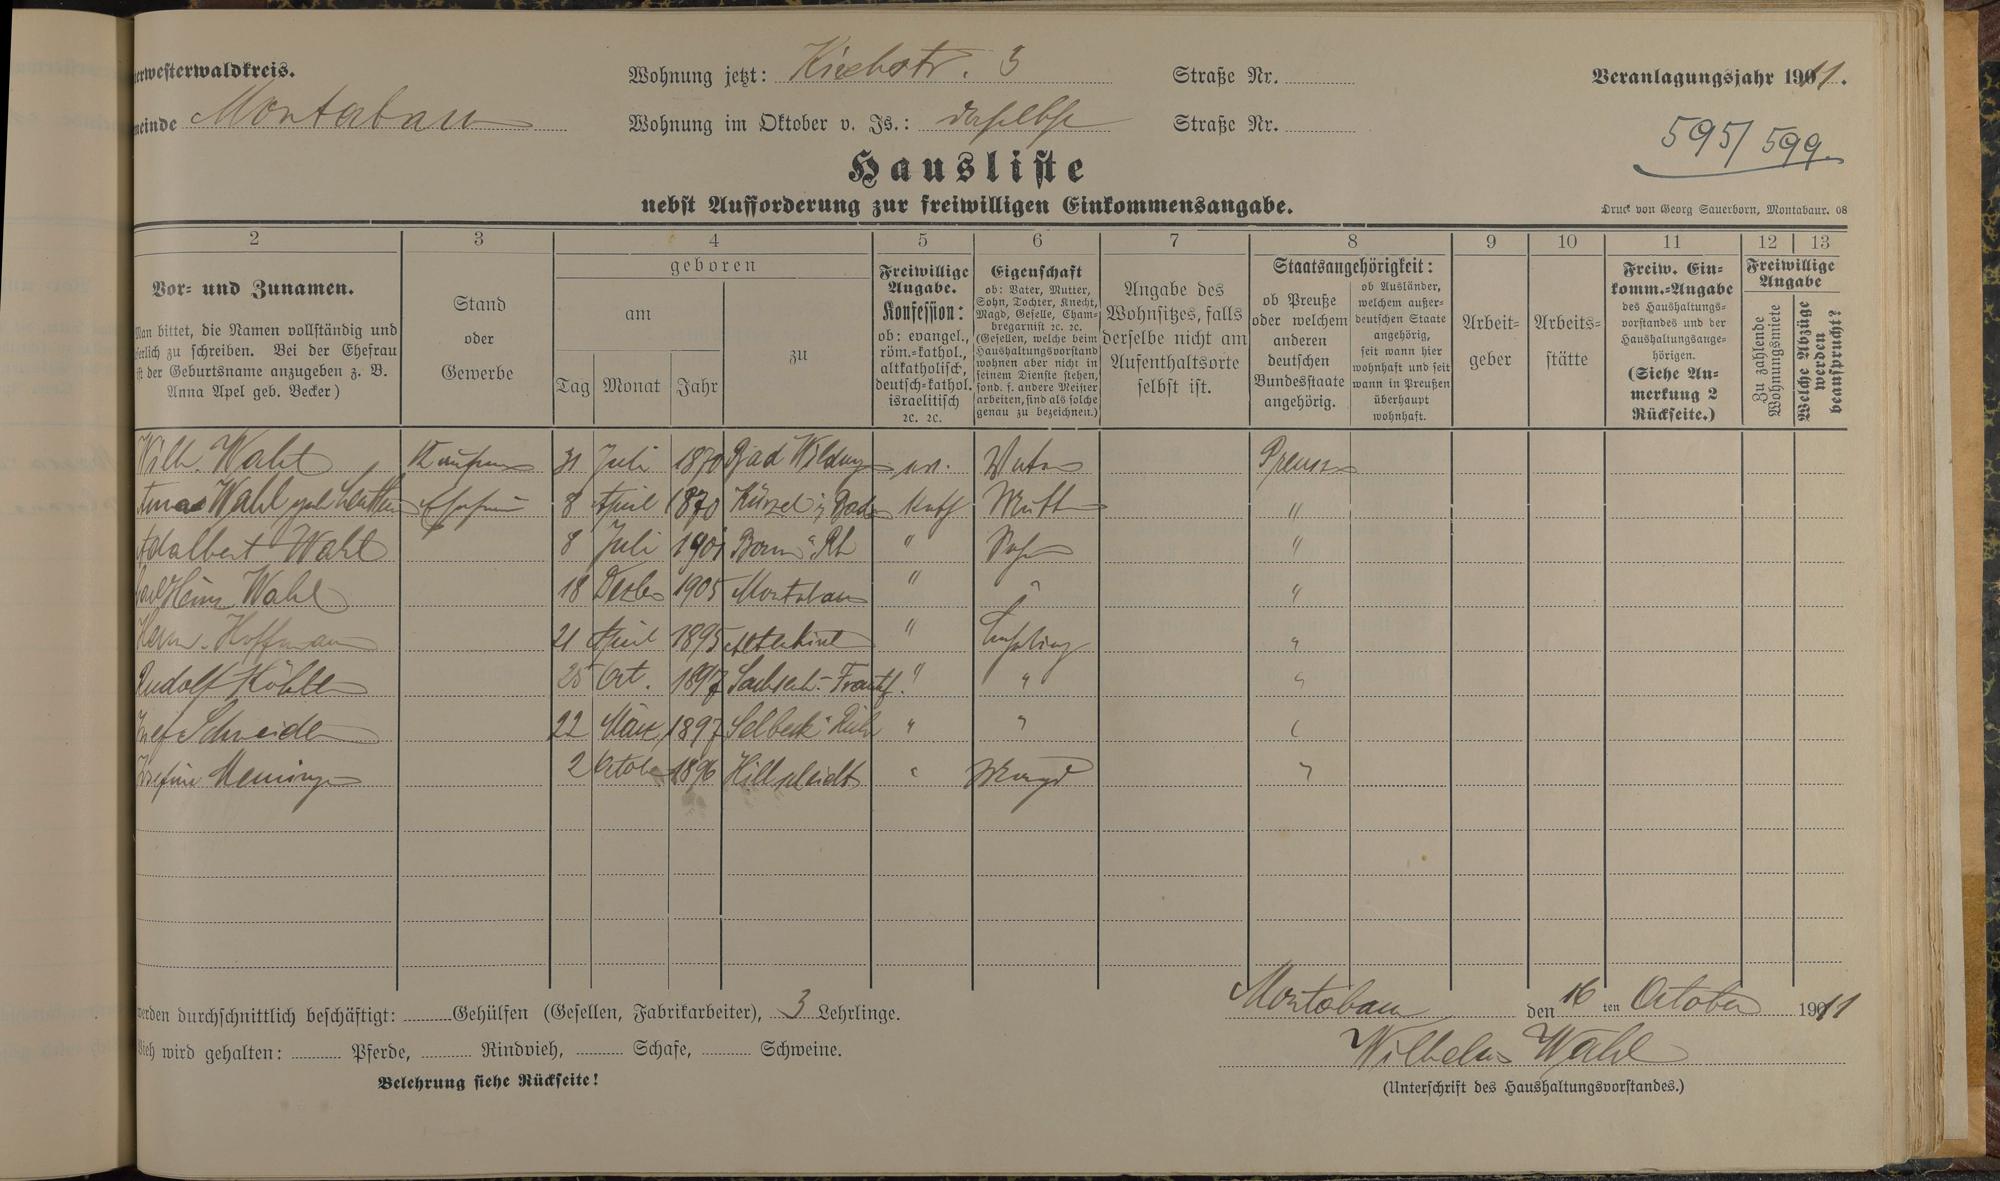 erwesterwaldkreis.
Wohnung jetzt: Kirchstr. 3 Straße Nr.
Veranlagungsjahr 1911.
meinde Montabaur
Wohnung im Oktober v. Js.: daselbst Straße Nr.
595/599.
Hausliste
nebst Aufforderung zur freiwilligen Einkommensangabe.
Druck von Georg Sauerborn, Montabaur. 08
2 3 4 5 6 7 8 9 10 11 12 13
Vor- und Zunamen.
Man bittet, die Namen vollständig und
serlich zu schreiben. Bei der Ehefrau
ist der Geburtsname anzugeben z. B.
Anna Apel geb. Becker)
Stand
oder
Gewerbe
geboren
am
Tag Monat Jahr
zu
Freiwillige
Angabe.
Konfession:
ob: evangel.,
röm.-kathol.,
altkatholisch,
deutsch-kathol.
israelitisch
2c. 2c.
Eigenschaft
ob: Vater, Mutter,
Sohn, Tochter, Knecht,
Magd, Geselle, Cham-
bregarnist 2c. 2c.
(Gesellen, welche beim
Haushaltungsvorstand
wohnen aber nicht in
seinem Dienste stehen,
sond. f. andere Meister
arbeiten, sind als solche
genau zu bezeichnen.)
Angabe des
Wohnsitzes, falls
derselbe nicht am
Aufenthaltsorte
selbst ist.
Staatsangehörigkeit:
ob Preuße
oder welchem
anderen
deutschen
Bundesstaate
angehörig.
ob Ausländer,
welchem außer-
deutschen Staate
angehörig,
seit wann hier
wohnhaft und seit
wann in Preußen
überhaupt
wohnhaft.
Arbeit-
geber
Arbeits-
stätte
Freiw. Ein-
komm.-Angabe
des Haushaltungs-
vorstandes und der
Haushaltungsange-
hörigen.
(Siehe An-
merkung 2
Rückseite.)
Freiwillige
Angabe
Zu zahlende
Wohnungsmiete
Welche Abzüge
werden
beansprucht?
Wilh. Wahl Kaufmann 31 Juli 1870 Bad Wildungen ev. Vater Preusse
Wahl geb. Ehefrau 8 April 1870 Kürzel i/ Baden kath Mutter "
Adalbert Wahl 8 Juli 1901 Bonn a Rh " Sohn "
Carl Heinz Wahl 18 Dezbr 1905 Montabaur " " "
Herm. Hoffmann 21 April 1895 " Lehrling "
Rudolf Köhler 25 Oct. 1897 " " "
Josef Schneider 22 März 1897 Selbeck " " "
Josefine 2 October 1896 Hillscheidt " Magd "
werden durchschnittlich beschäftigt: Gehülfen (Gesellen, Fabrikarbeiter), 3 Lehrlinge.
Montabaur den 16 ten October 1911
Vieh wird gehalten: Pferde, Rindvieh, Schafe, Schweine.
Wilhelm Wahl
Belehrung siehe Rückseite!
(Unterschrift des Haushaltungsvorstandes.)